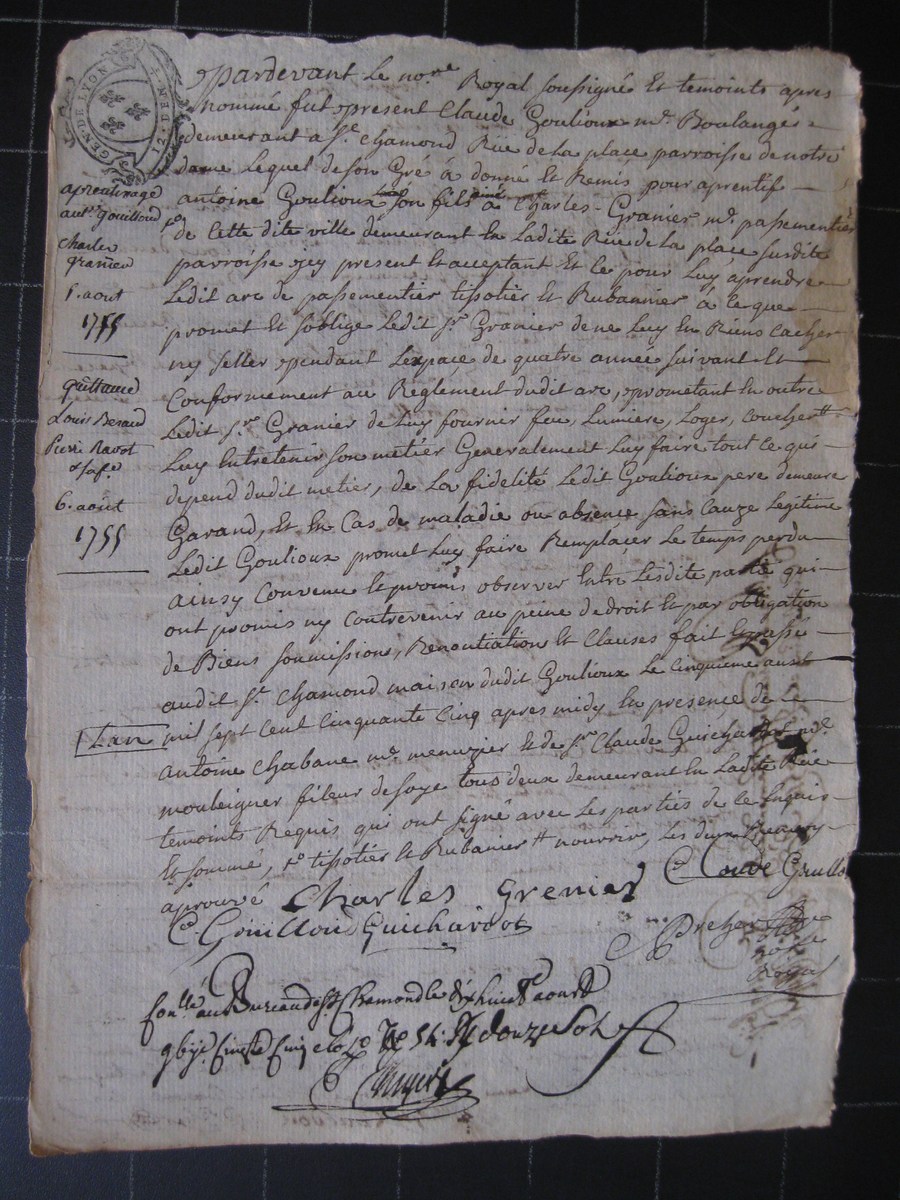 GEN. DE LYON
12. DEN.
pardevant le no.re Royal soussigné Et temoints apres
nommé fut present Claude Goulioux m.e Boulangé
demeurant a S.t chamond Rüe de la place parroisse de notre
dame Lequel de son Gré à donné Et Remis pour aprentif
antoine Goulioux son fils ainé à Charles Granier m.e passementier
de Cette dite ville demeurant En Ladite Rüe de La place susdite
parroisse jcy present Et acceptant Et ce pour Luy aprendre
Ledit arc de passementier tissotier Et Rubannier à ce que
promet Et soblige Ledit s.r Granier de ne Luy En Riens cacher
ny seller pendant Lexpace de quatre année suivant Et
Conformement au Reglement dudit arc, prometant En outre
Ledit s.r Granier de Luy fournir feu, Lumiere, Loger, coucher #
Luy Entretenir son métier Generalement Luy faire tout ce qui
depend dudit metier, de La fidelité Ledit Goulioux pere demeure
Garand, Et En Cas de maladie ou absence sans Cauze Legitime
Ledit Goulioux promet Luy faire Remplaçer Le temps perdu
ainsy Convenu Et promis observer Entre Lesdite partie qui
ont promis ny Contrevenir au peine de droit Et par obligation
de Biens soumissions, Renontiations Et Clauses fait Et passé
audit S.t chamond maison dudit Goulioux Le Cinquieme aust
Lan mil sept Cent Cinquante Cinq apres midy En presence de
antoine Chabane m.e menuzier Et de s.r Claude Guichardot m.e
mouleigner fileur de soye tous deux demeurant En Ladite Rüe
temoints Requis qui ont signé avec Les parties de ce Enquis
Et somme, tissotier Et Rubanier # nourrir, Les deux
aprouvé Charles Grenier
C. Gouillou Guichardot
Royal
Con.lé au Bureau de S.t Chamond le dix huit aoust
Cinq douze sols
aprentissage
ant.e Gouilloud
charles
granieu
5. aout
1755
quittance
Louis Beraud
Pierre Ravot
6. aout
1755